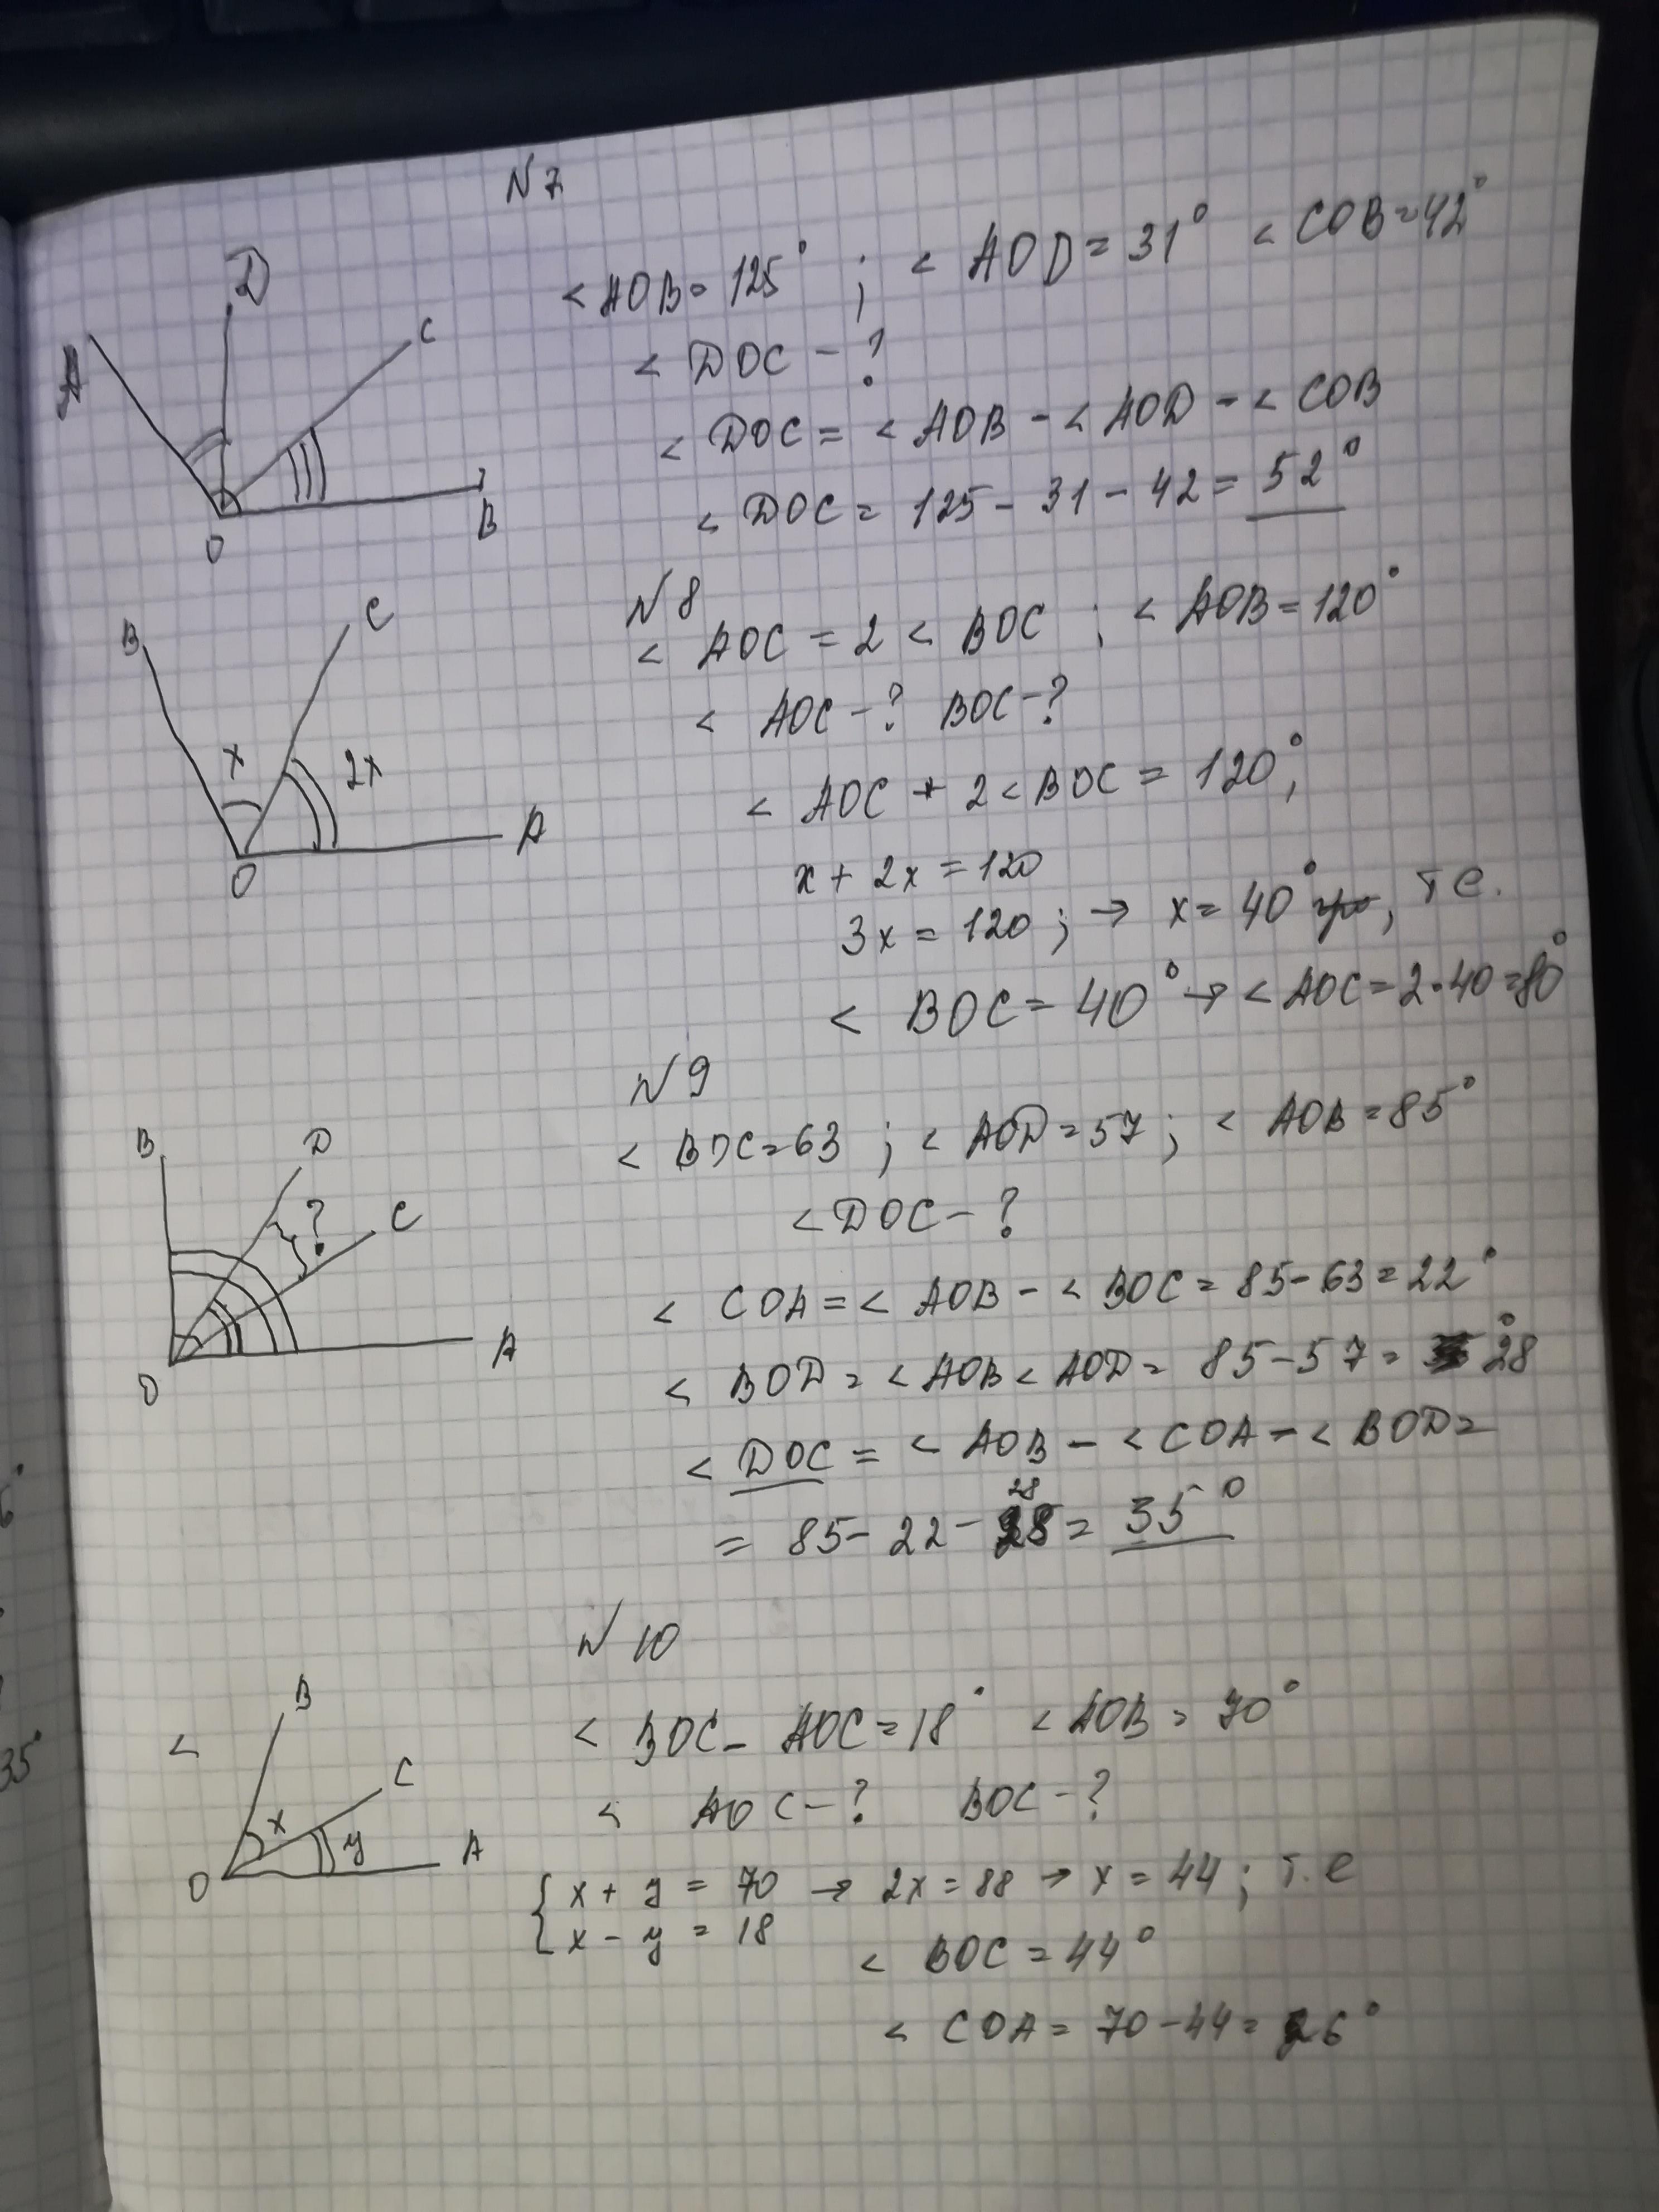 N 7
D
C
A
O
B
< AOB = 125° ; < AOD = 31° < COB = 42°
< DOC - ?
< DOC = < AOB - < AOD - < COB
< DOC = 125 - 31 - 42 = 52°
N 8
B
C
x
2x
A
O
< AOC = 2 < BOC ; < AOB = 120°
< AOC - ? BOC - ?
< AOC + 2 < BOC = 120°;
x + 2x = 120
3x = 120 ; → x = 40°, т е.
< BOC = 40° → < AOC = 2·40 = 80°
N 9
B
D
?
C
A
O
< BOC = 63 ; < AOD = 57 ; < AOB = 85°
< DOC - ?
< COA = < AOB - < BOC = 85 - 63 = 22°
< BOD = < AOB < AOD = 85 - 57 = 28°
< DOC = < AOB - < COA - < BOD =
= 85 - 22 - 28 = 35°
N 10
<
B
C
x
y
A
O
< BOC - AOC = 18° < AOB = 70°
< AOC - ? BOC - ?
{ x + y = 70 → 2x = 88 → x = 44 ; т. е
x - y = 18
< BOC = 44°
< COA = 70 - 44 = 26°
35°